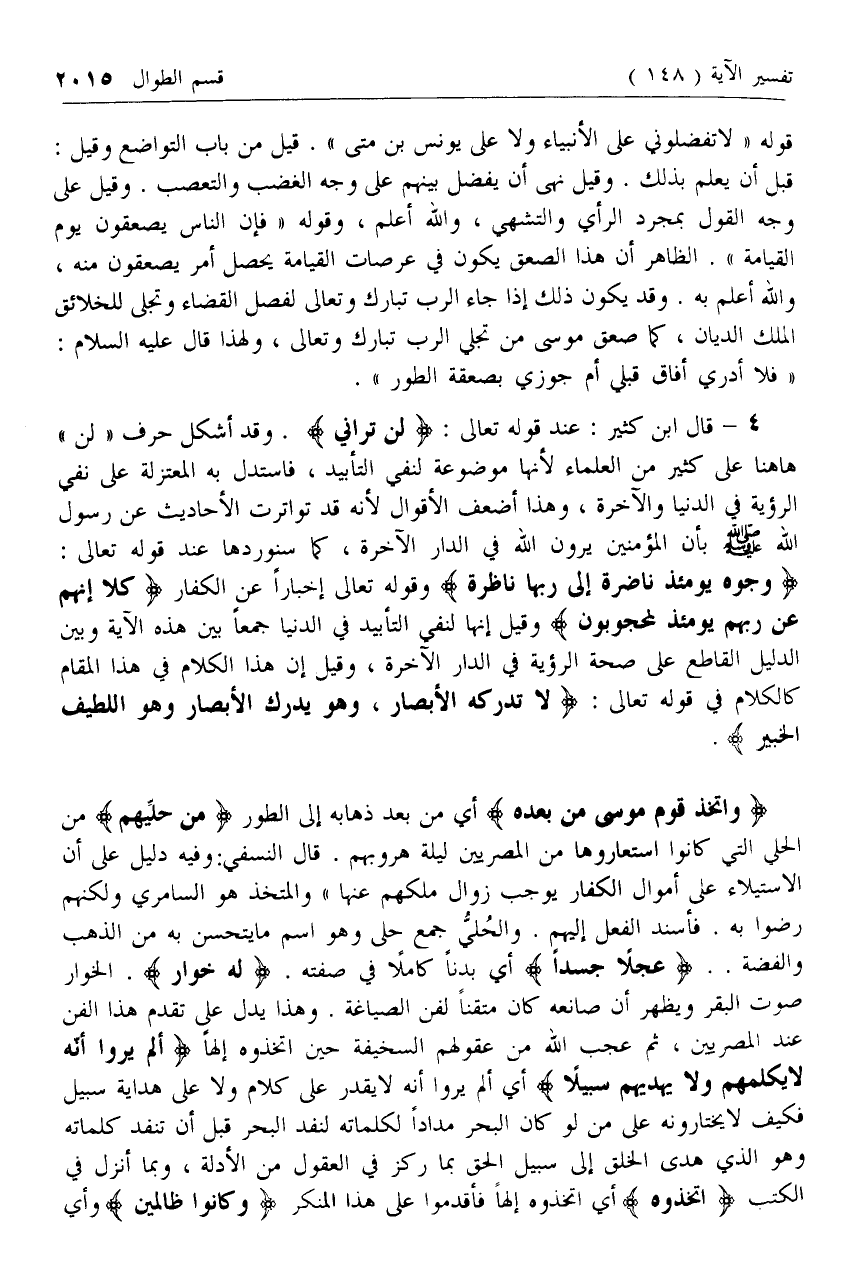 تفسير الآية ( ١٤٨ ) قسم الطوال ٢٠١٥
قوله « لاتفضلوني على الأنبياء ولا على يونس بن متى » . قيل من باب التواضع وقيل :
قبل أن يعلم بذلك . وقيل نهى أن يفضل بينهم على وجه الغضب والتعصب . وقيل على
وجه القول بمجرد الرأي والتشهي ، والله أعلم ، وقوله « فإن الناس يصعقون يوم
القيامة » . الظاهر أن هذا الصعق يكون في عرصات القيامة يحصل أمر يصعقون منه ،
والله أعلم به . وقد يكون ذلك إذا جاء الرب تبارك وتعالى لفصل القضاء وتجلى للخلائق
الملك الديان ، كما صعق موسى من تجلي الرب تبارك وتعالى ، ولهذا قال عليه السلام :
« فلا أدري أفاق قبلي أم جوزي بصعقة الطور » .
٤ – قال ابن كثير : عند قوله تعالى : ﴿ لن تراني ﴾ . وقد أشكل حرف « لن »
هاهنا على كثير من العلماء لأنها موضوعة لنفي التأبيد ، فاستدل به المعتزلة على نفي
الرؤية في الدنيا والآخرة ، وهذا أضعف الأقوال لأنه قد تواترت الأحاديث عن رسول
الله ﷺ بأن المؤمنين يرون الله في الدار الآخرة ، كما سنوردها عند قوله تعالى :
﴿ وجوه يومئذ ناضرة إلى ربها ناظرة ﴾ وقوله تعالى إخباراً عن الكفار ﴿ كلا إنهم
عن ربهم يومئذ لمحجوبون ﴾ وقيل إنها لنفي التأبيد في الدنيا جمعاً بين هذه الآية وبين
الدليل القاطع على صحة الرؤية في الدار الآخرة ، وقيل إن هذا الكلام في هذا المقام
كالكلام في قوله تعالى : ﴿ لا تدركه الأبصار ، وهو يدرك الأبصار وهو اللطيف
الخبير ﴾ .
﴿ واتخذ قوم موسى من بعده ﴾ أي من بعد ذهابه إلى الطور ﴿ من حليِّهم ﴾ من
الحلي التي كانوا استعاروها من المصريين ليلة هروبهم . قال النسفي:وفيه دليل على أن
الاستيلاء على أموال الكفار يوجب زوال ملكهم عنها » والمتخذ هو السامري ولكنهم
رضوا به . فأسند الفعل إليهم . والحُليُّ جمع حلى وهو اسم مايتحسن به من الذهب
والفضة . . ﴿ عجلًا جسداً ﴾ أي بدناً كاملًا في صفته . ﴿ له خوار ﴾ . الخوار
صوت البقر ويظهر أن صانعه كان متقناً لفن الصياغة . وهذا يدل على تقدم هذا الفن
عند المصريين ، ثم عجب الله من عقولهم السخيفة حين اتخذوه إلهاً ﴿ ألم يروا أنّه
لايكلمهم ولا يهديهم سبيلًا ﴾ أي ألم يروا أنه لايقدر على كلام ولا على هداية سبيل
فكيف لايختارونه على من لو كان البحر مداداً لكلماته لنفد البحر قبل أن تنفد كلماته
وهو الذي هدى الخلق إلى سبيل الحق بما ركز في العقول من الأدلة ، وبما أنزل في
الكتب ﴿ اتخذوه ﴾ أي اتخذوه إلهاً فأقدموا على هذا المنكر ﴿ وكانوا ظالمين ﴾ وأي